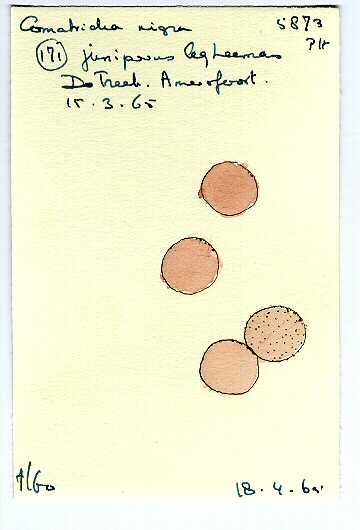 Comatricha nigra 5873
(171) juniperus leg Leemans Plt
De Treek. Amersfoort.
15.3.65
18.4.65